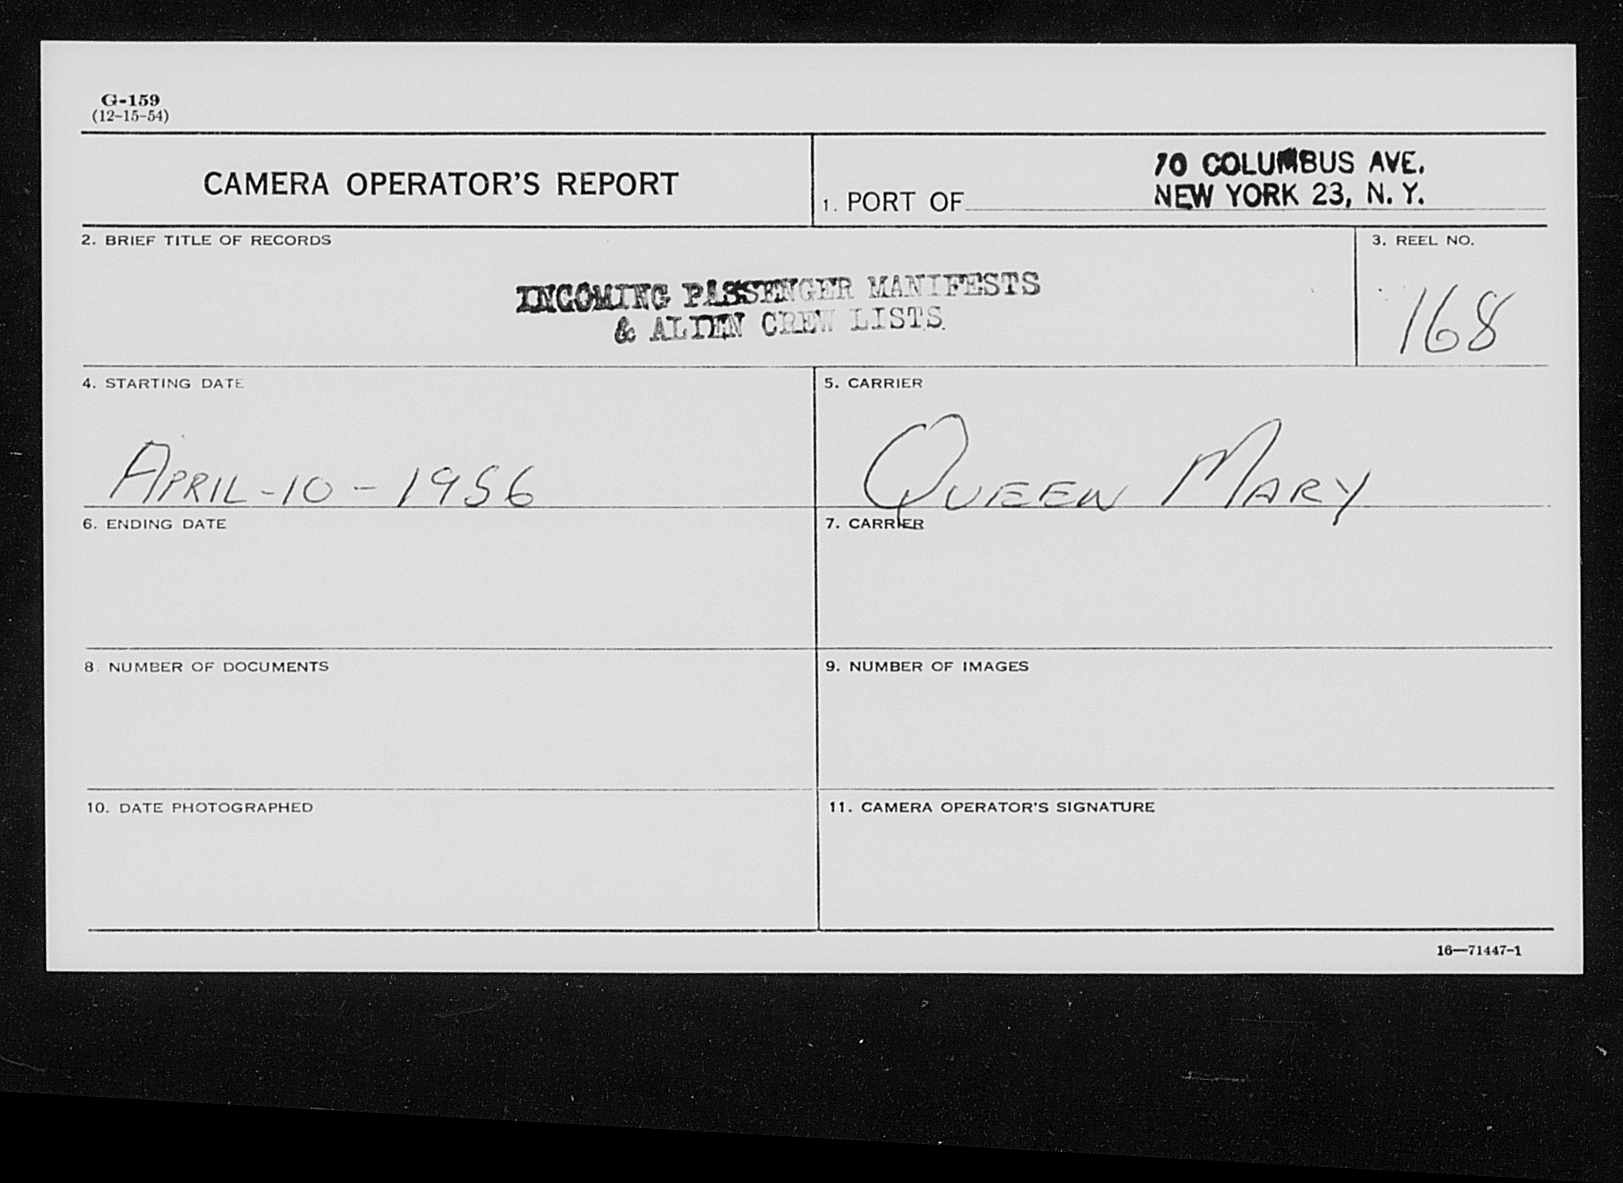 G-159
(12-15-54)
CAMERA OPERATOR'S REPORT
1. PORT OF
70 COLUMBUS AVE.
NEW YORK 23, N. Y.
2. BRIEF TITLE OF RECORDS
INCOMING PASSENGER MANIFESTS
& ALIEN CREW LISTS.
3. REEL NO.
168
4. STARTING DATE
APRIL-10-1956
5. CARRIER
QUEEN MARY
6. ENDING DATE
7. CARRIER
8. NUMBER OF DOCUMENTS
9. NUMBER OF IMAGES
10. DATE PHOTOGRAPHED
11. CAMERA OPERATOR'S SIGNATURE
16—71447-1